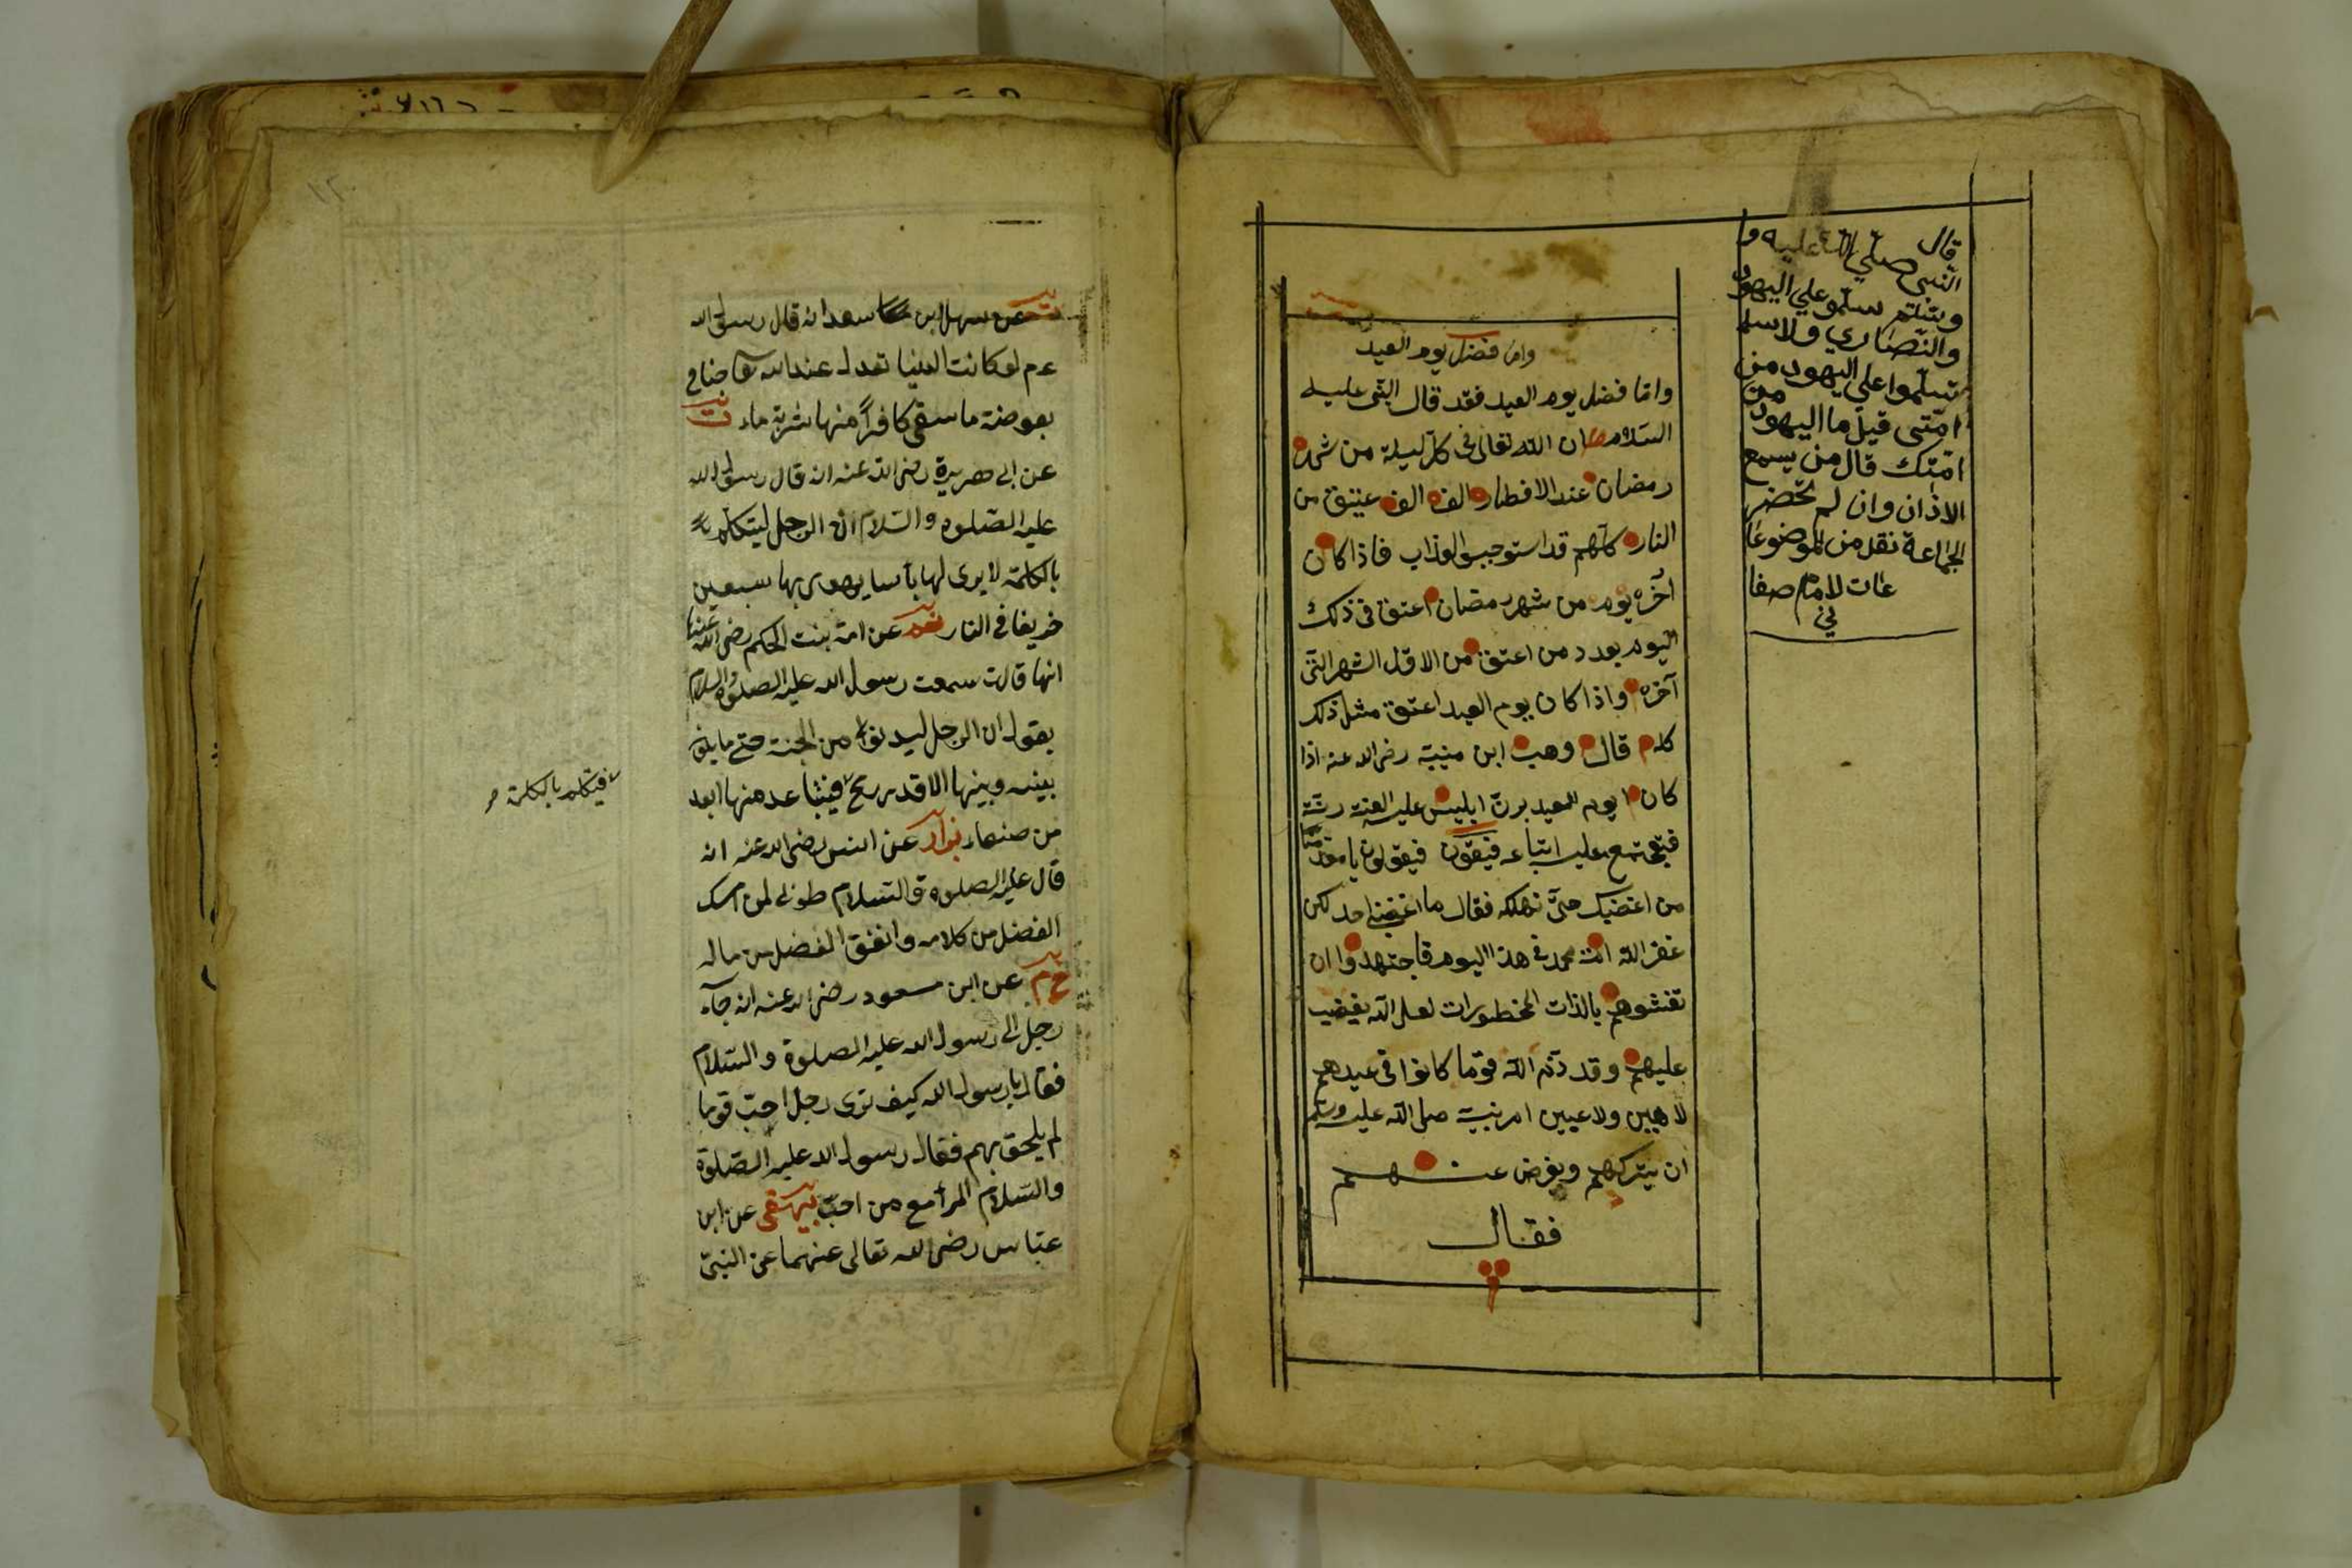 قال
النبي صلي الله عليه و
وسلم سلمو علي اليهود
والنصاري ولا سلم
تسلموا علي اليهود من
من
امتي قيل ما اليهود
امتك قال من يسمع
الاذان وان لم يحضر
الجماعة نقل من الموضوعا
عات للامام صفا
ني
واما فضل يوم العيد
واما فضل يوم العيد فقد قال النبي عليه
السلام ان الله تعالى في كل ليلة من شهر
رمضان عند الافطار الف الف عتيق من
النار كلهم قد استوجبوا العذاب فاذا كان
آخره يوم من شهر رمضان اعتق في ذلك
اليوم بعدد من اعتق من الاول الشهر الى
آخره واذا كان يوم العيد اعتق مثل ذلك
كله قال وهب ابن منبه رضى الله عنه اذا
كان يوم العيد برن ابليس عليه العنه رنة
فيجتمع عليه اتباعه فيقون فيقولون يا مقدمنا
من اغضبك حتى نهلكه فقال ما اغضبنى احد لكن
غفر الله امة محمد في هذا اليوم فاجتهدوا ان
تفتنوهم بالذات المخطورات لعل الله يغضب
عليهم وقد ذم الله قوما كانوا في عيدهم
لاهيين ولاعبين امر نبيه صلى الله عليه وسلم
ان يتركهم ويعرض عنهم
فقال
عن سهل ابن سعد انه قال رسول الله
عم لو كانت الدنيا تعدل عند الله تعا جناح
بعوضة ما سقى كافرا منها شربة ماء ت
عن ابى هريرة رضى الله عنه انه قال رسول الله
عليه الصلوة والسلام ان الرجل ليتكلم
بالكلمة لا يرى لها بأسا يهوى بها سبعين
خريفا في النار عن امة بنت الحكم رضى الله عنها
انها قالت سمعت رسول الله عليه الصلوة والسلام
يقول ان الرجل ليدنوا من الجنة حتى ما يكون
بينه وبينها الا قدر رمح فيتباعد منها ابعد
فيتكلم بالكلمة
من صنعاء بزار عن انس رضى الله عنه انه
قال عليه الصلوة والسلام طوبى لمن امسك
الفضل من كلامه وانفق الفضل من ماله
خ م عن ابن مسعود رضى الله عنه انه جآء
رجل الى رسول الله عليه الصلوة والسلام
فقال يا رسول الله كيف ترى رجل احب قوما
لم يلحق بهم فقال رسول الله عليه الصلوة
والسلام المرأ مع من احب بيهقى عن ابن
عباس رضى الله تعالى عنهما عن النبى